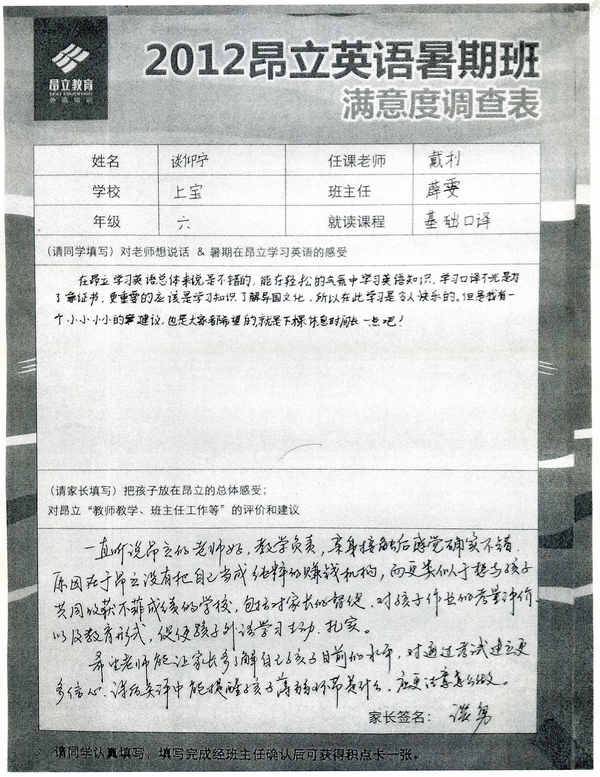 昂立教育
ONLY EDUCATION
外语培训
2012昂立英语暑期班
满意度调查表
姓名 谈仰宁 任课老师 戴利
学校 上宝 班主任 薛雯
年级 六 就读课程 基础口译
(请同学填写)对老师想说话 & 暑期在昂立学习英语的感受
在昂立学习英语总体来说是不错的,能在轻松的气氛中学习英语知识,学习口译不光是为
了拿证书,更重要的应该是学习知识了解异国文化,所以在此学习是令人快乐的。但是我有一
个小小小小的建议,也是大家都希望的,就是下课休息时间长一点吧!
(请家长填写)把孩子放在昂立的总体感受;
对昂立“教师教学、班主任工作等”的评价和建议
一直听说昂立的老师好,教学负责,亲身接触后感觉确实不错.
原因在于昂立没有把自己当成纯粹的赚钱机构,而更类似于想与孩子
共同收获不菲成绩的学校,包括对家长的督促、对孩子作业的考量评价
以及教育形式,促使孩子外语学习主动、扎实。
希望老师能让家长多了解自己孩子目前的水平,对通过考试建立更
多信心、课后点评中能提醒孩子薄弱环节是什么,应更注意怎么做。
家长签名: 谈勇
请同学认真填写,填写完成经班主任确认后可获得积点卡一张。